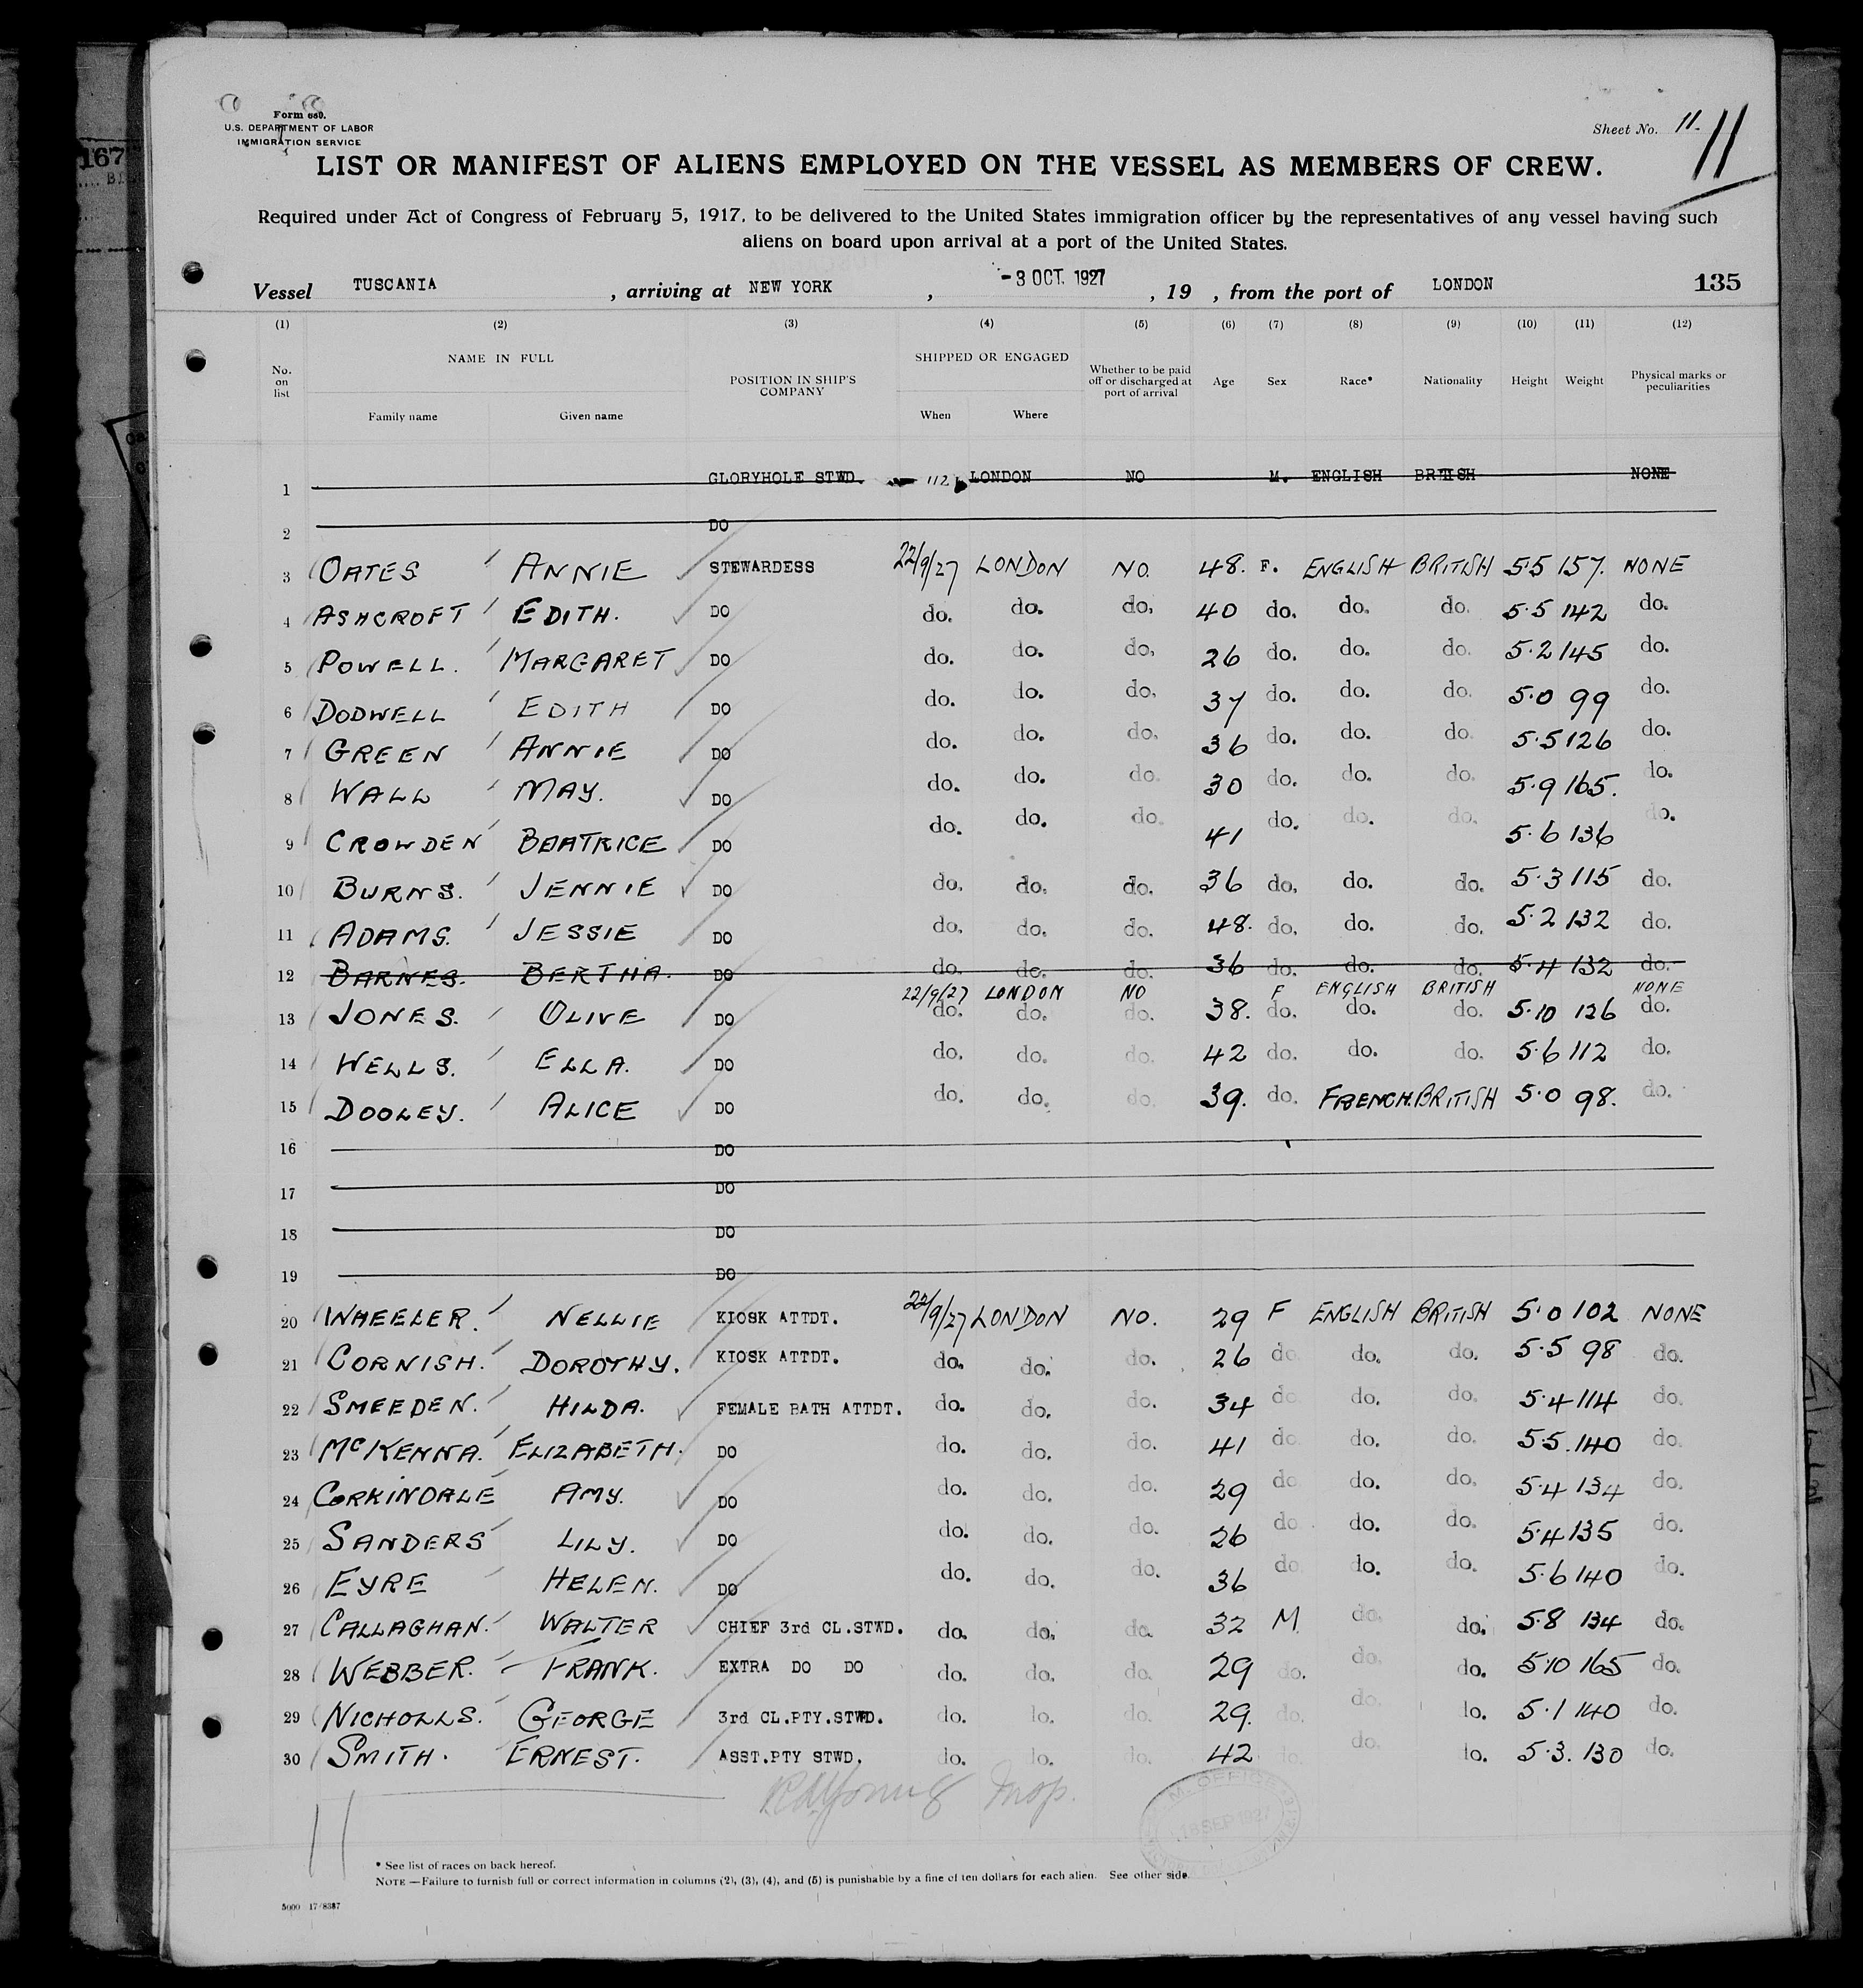 Form 680.
U.S. DEPARTMENT OF LABOR
IMMIGRATION SERVICE
Sheet No. 11. 11
LIST OR MANIFEST OF ALIENS EMPLOYED ON THE VESSEL AS MEMBERS OF CREW.
Required under Act of Congress of February 5, 1917, to be delivered to the United States immigration officer by the representatives of any vessel having such
aliens on board upon arrival at a port of the United States.
Vessel TUSCANIA, arriving at NEW YORK, -3 OCT. 1927, 19 , from the port of LONDON 135
(1) (2) (3) (4) (5) (6) (7) (8) (9) (10) (11) (12)
No. on list NAME IN FULL Family name Given name POSITION IN SHIP'S COMPANY SHIPPED OR ENGAGED When Where Whether to be paid off or discharged at port of arrival Age Sex Race* Nationality Height Weight Physical marks or peculiarities
1 GLORYHOLE STWD. LONDON NO M. ENGLISH BRITISH NONE
2 DO
3 OATES ANNIE STEWARDESS 22/9/27 LONDON NO. 48. F. ENGLISH BRITISH 5.5 157. NONE
4 ASHCROFT EDITH. DO do. do. do. 40 do. do. do. 5.5 142 do.
5 POWELL. MARGARET DO do. do. do. 26 do. do. do. 5.2 145 do.
6 DODWELL EDITH DO do. do. do. 37 do. do. do. 5.0 99 do.
7 GREEN ANNIE DO do. do. do. 36 do. do. do. 5.5 126 do.
8 WALL MAY. DO do. do. do. 30 do. do. do. 5.9 165. do.
9 CROWDEN BEATRICE DO do. do. do. 41 do. do. do. 5.6 136 do.
10 BURNS. JENNIE DO do. do. do. 36 do. do. do. 5.3 115 do.
11 ADAMS. JESSIE DO do. do. do. 48. do. do. do. 5.2 132 do.
12 BARNES. BERTHA. DO do. do. do. 36 do. do. do. 5.4 132 do.
22/9/27 LONDON NO F ENGLISH BRITISH NONE
13 JONES. OLIVE DO do. do. do. 38. do. do. do. 5.10 126 do.
14 WELLS. ELLA. DO do. do. do. 42 do. do. do. 5.6 112 do.
15 DOOLEY. ALICE DO do. do. do. 39. do. FRENCH. BRITISH 5.0 98. do.
16 DO
17 DO
18 DO
19 DO
20 WHEELER. NELLIE KIOSK ATTDT. 22/9/27 LONDON NO. 29 F ENGLISH BRITISH 5.0 102 NONE
21 CORNISH. DOROTHY. KIOSK ATTDT. do. do. do. 26 do. do. do. 5.5 98 do.
22 SMEEDEN. HILDA. FEMALE BATH ATTDT. do. do. do. 34 do. do. do. 5.4 114 do.
23 McKENNA. ELIZABETH. DO do. do. do. 41 do. do. do. 5.5. 140 do.
24 CORKINDALE AMY. DO do. do. do. 29 do. do. do. 5.4 134 do.
25 SANDERS LILY. DO do. do. do. 26 do. do. do. 5.4 135 do.
26 EYRE HELEN. DO do. do. do. 36 do. do. do. 5.6 140 do.
27 CALLAGHAN. WALTER CHIEF 3rd CL.STWD. do. do. do. 32 M. do. do. 5.8 134 do.
28 WEBBER. FRANK. EXTRA DO DO do. do. do. 29 do. do. do. 5.10 165 do.
29 NICHOLLS. GEORGE 3rd CL.PTY.STWD. do. do. do. 29. do. do. do. 5.1 140 do.
30 SMITH. ERNEST. ASST.PTY STWD. do. do. do. 42 do. do. do. 5.3. 130 do.
11
18 SEP 1927
* See list of races on back hereof.
NOTE—Failure to furnish full or correct information in columns (2), (3), (4), and (5) is punishable by a fine of ten dollars for each alien. See other side.